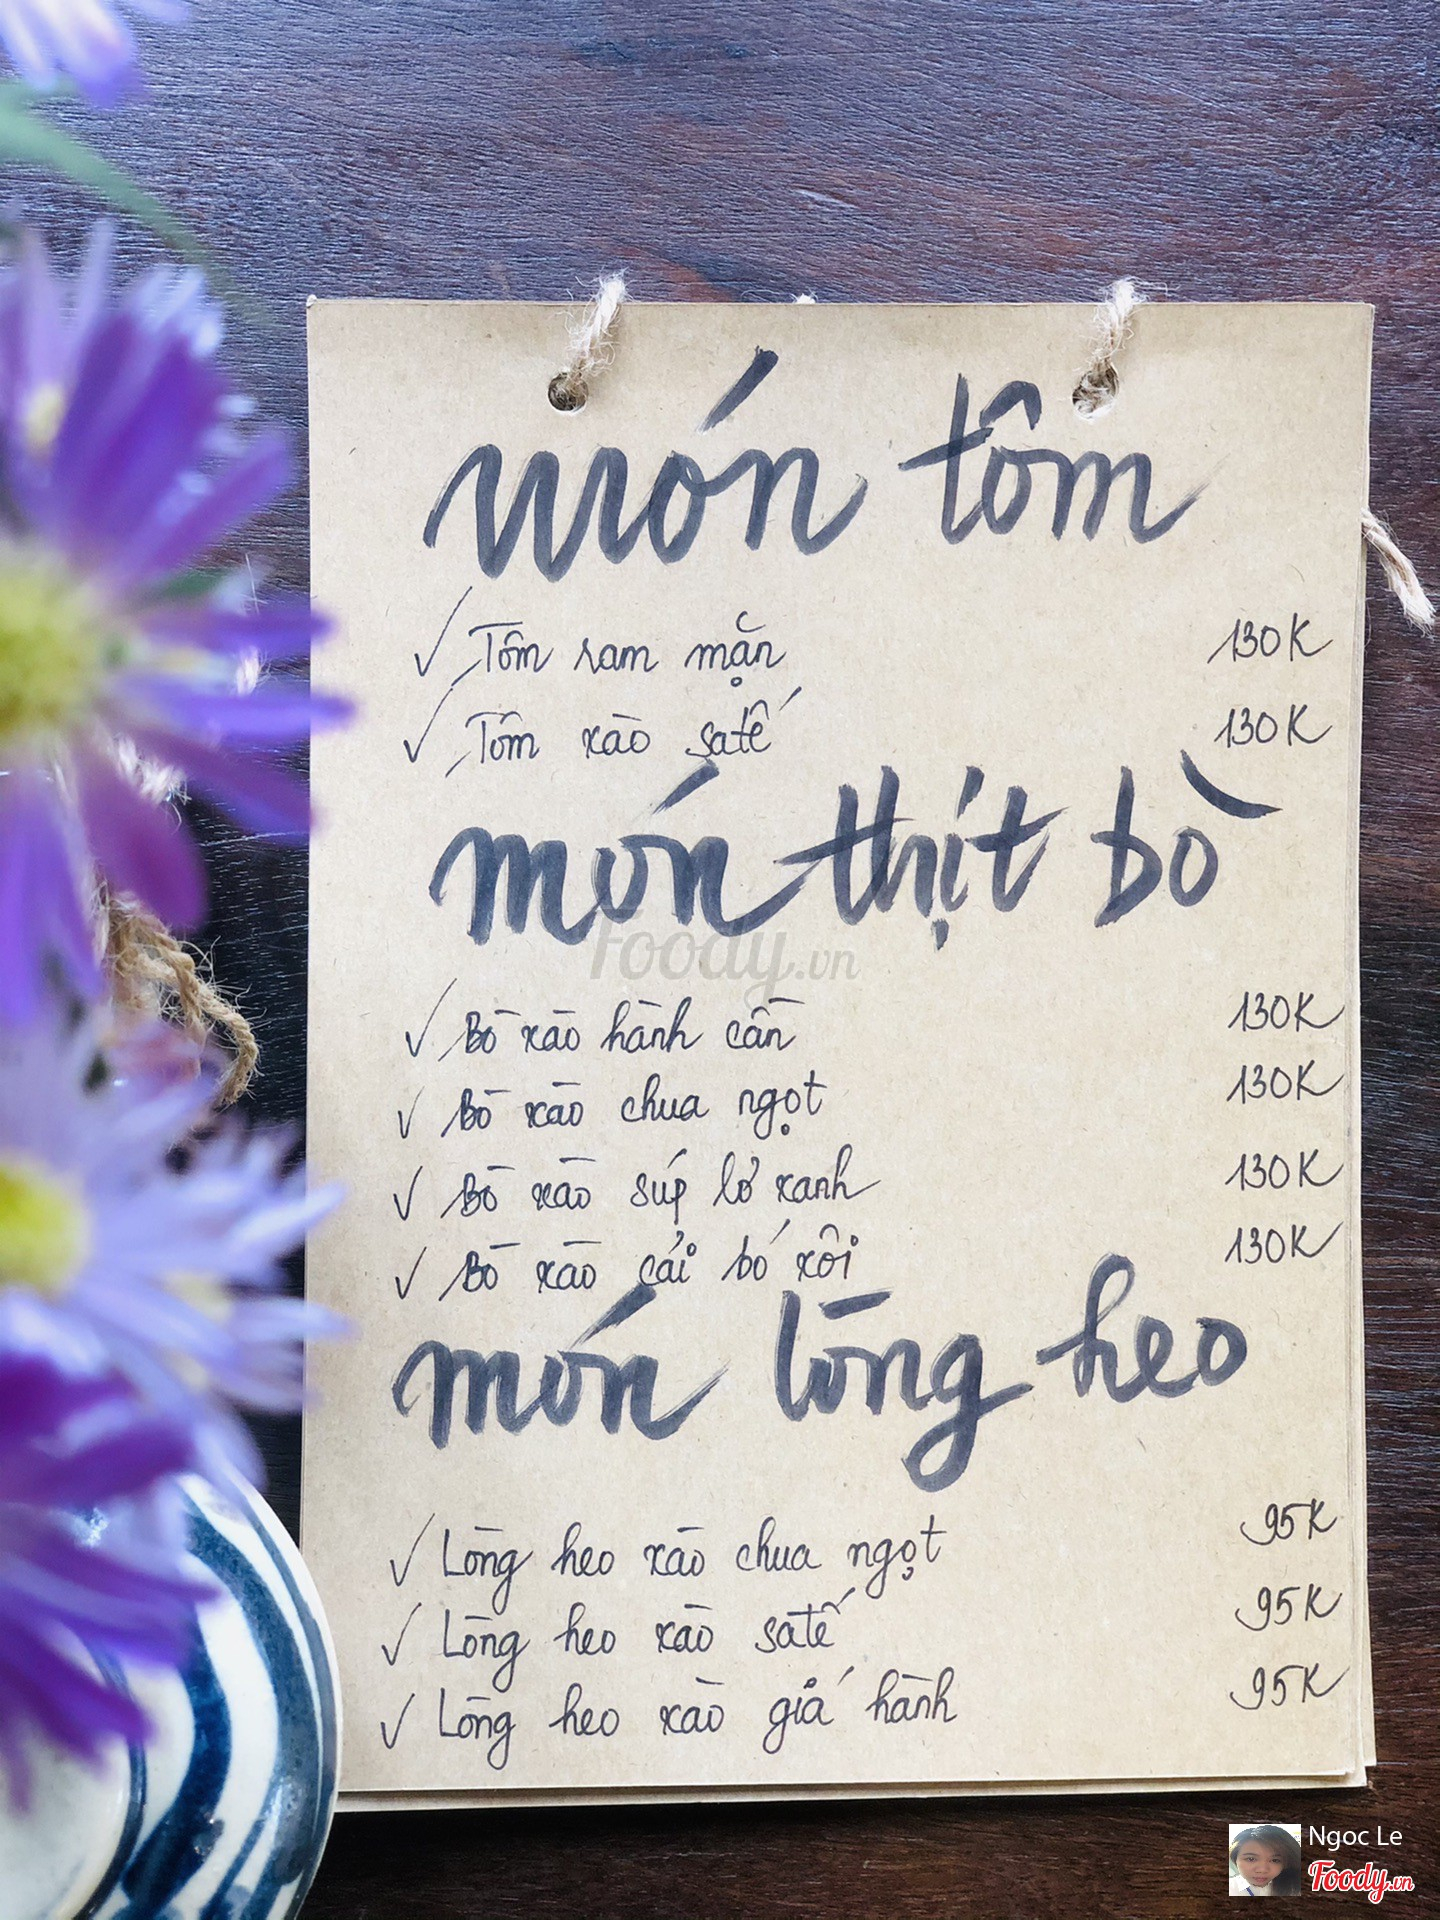 món tôm
Tôm ram mặn 130K
Tôm xào satế 130K
món thịt bò
Foody.vn
Bò xào hành cần 130K
Bò xào chua ngọt 130K
Bò xào súp lơ xanh 130K
Bò xào cải bó xôi 130K
món lòng heo
Lòng heo xào chua ngọt 95K
Lòng heo xào satế 95K
Lòng heo xào giá hành 95K
Ngoc Le
Foody.vn